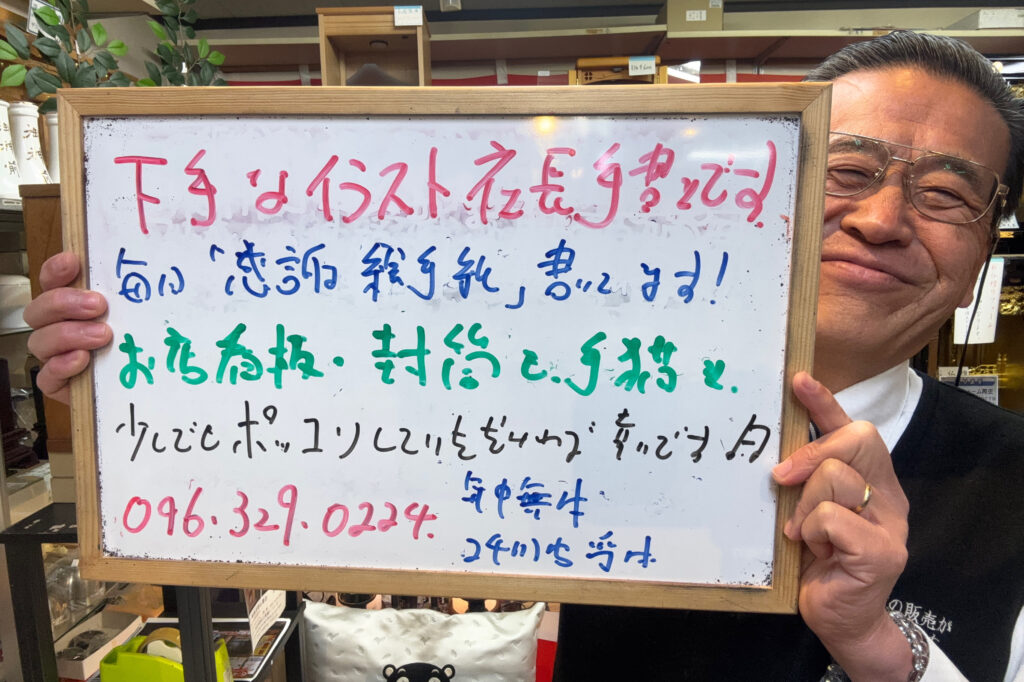 下手なイラスト社長手書きです
毎日「感謝絵手紙」書いてます!
お店看板・封筒と、手描きと、
少しでもホッコリしていただければ幸いです 夕
096.329.0224.
年中無休
24時間受付
の販売が